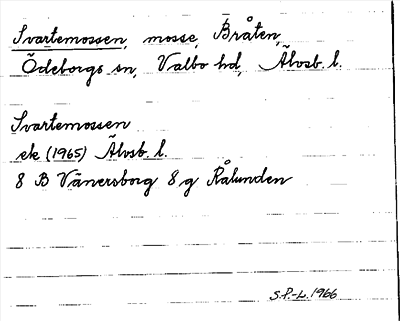 Svartemossen, mosse, Bråten,
Ödeborgs sn, Valbo hd, Älvsb. l.
Svartemossen
ek (1965) Älvsb. l.
8 B Vänersborg 8 g Rålunden
S.P.-L. 1966